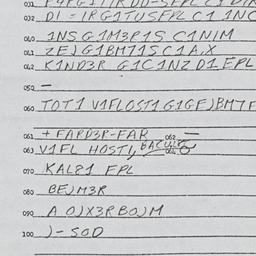 032 DI-1RG1TUSFPL C1 1NC
010 1NS G1M3P1S C1N1M
011 ZEJG1BM71SC1A.X
012 K1ND3R G1C1NZ D1 EPL
050 —
060 TOT1 V1FLOST1G1GFJBM7F
061 + FARD3R-FAR 062 —
063 V1FL HOSTLY BACULE 064
070 KAL21 FPL
080 BEJM3R
090 A OJX3RBOJM
100 )-SOD